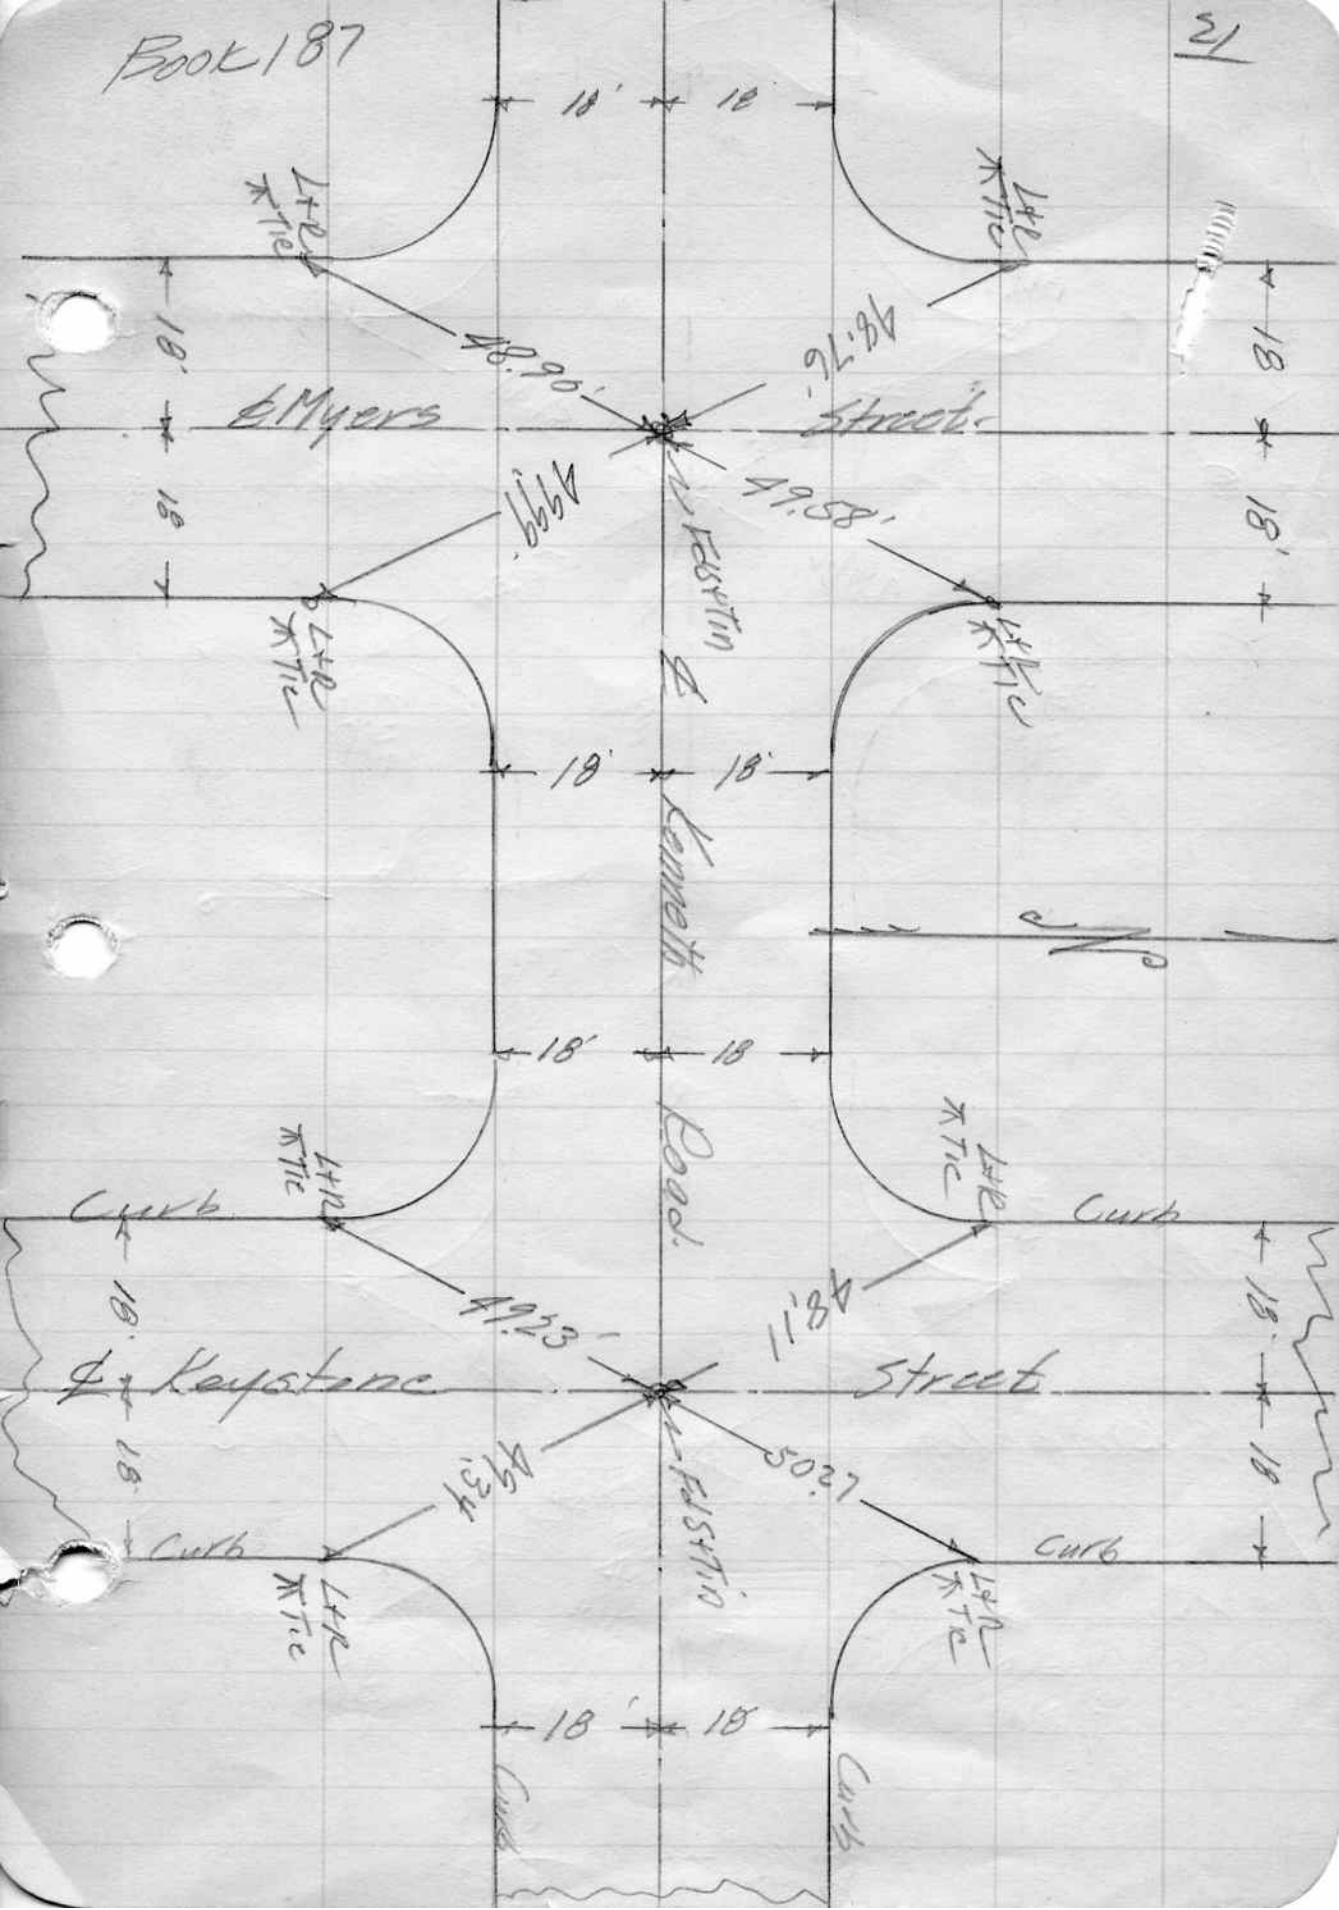 Book 187
13
18'
18
L+R
Tie
L+R
Tie
18'
48.90'
48.76'
18
℄ Myers
Street
49.99'
49.58'
18
18'
Fd S+Tin
L+R
Tie
L+R
Tie
℄
18'
18'
Kenneth
N
18'
18
Road.
L+R
Tie
L+R
Tie
Curb
Curb
18'
49.23'
48.11'
18'
℄ Keystone
Street
18
49.34'
50.27
18
Fd S+Tin
Curb
Curb
L+R
Tie
L+R
Tie
18'
18
Curb
Curb